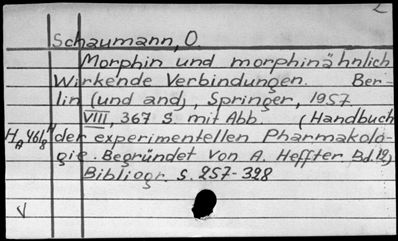 Schaumann, O
Morphin und morphinähnlich
Wirkende Verbindungen. Ber-
lin (und and), Springer, 1957
VIII, 367 S. mit Abb. (Handbuch
der experimentellen Pharmakolo-
gie. Begründet von A. Heffter Bd. 12)
Bibliogr. S. 257-328
V